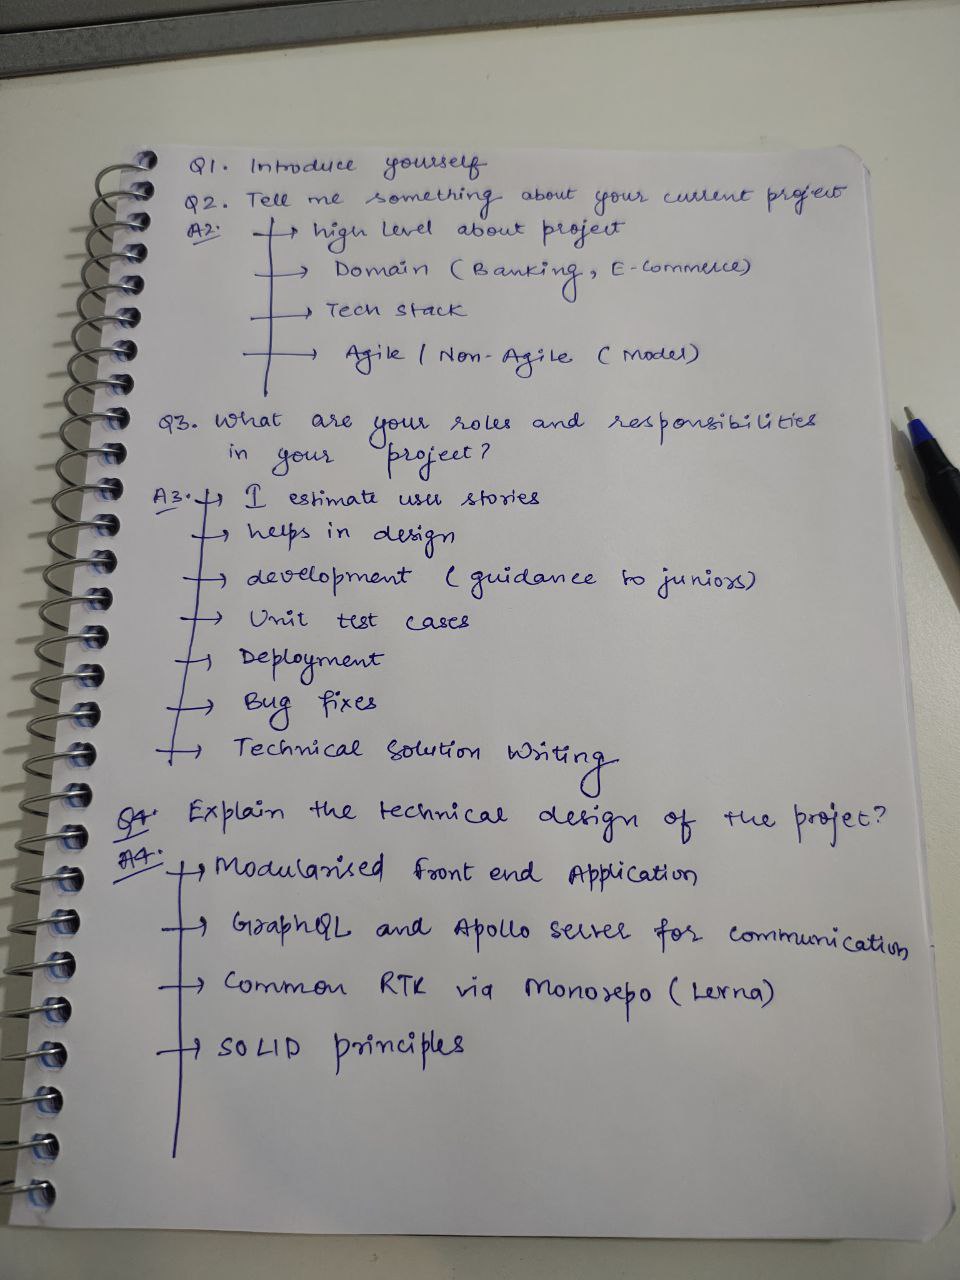 Q1. Introduce yourself
Q2. Tell me something about your current project
A2. → high level about project
→ Domain (Banking, E-commerce)
→ Tech stack
→ Agile / Non-Agile (Model)
Q3. What are your roles and responsibilities
in your project?
A3. → I estimate user stories
→ helps in design
→ development (guidance to juniors)
→ Unit test cases
→ Deployment
→ Bug fixes
→ Technical Solution Writing
Q4. Explain the technical design of the projet?
A4. → Modularised front end Application
→ GraphQL and Apollo server for communication
→ Common RTK via Monorepo (Lerna)
→ SOLID principles